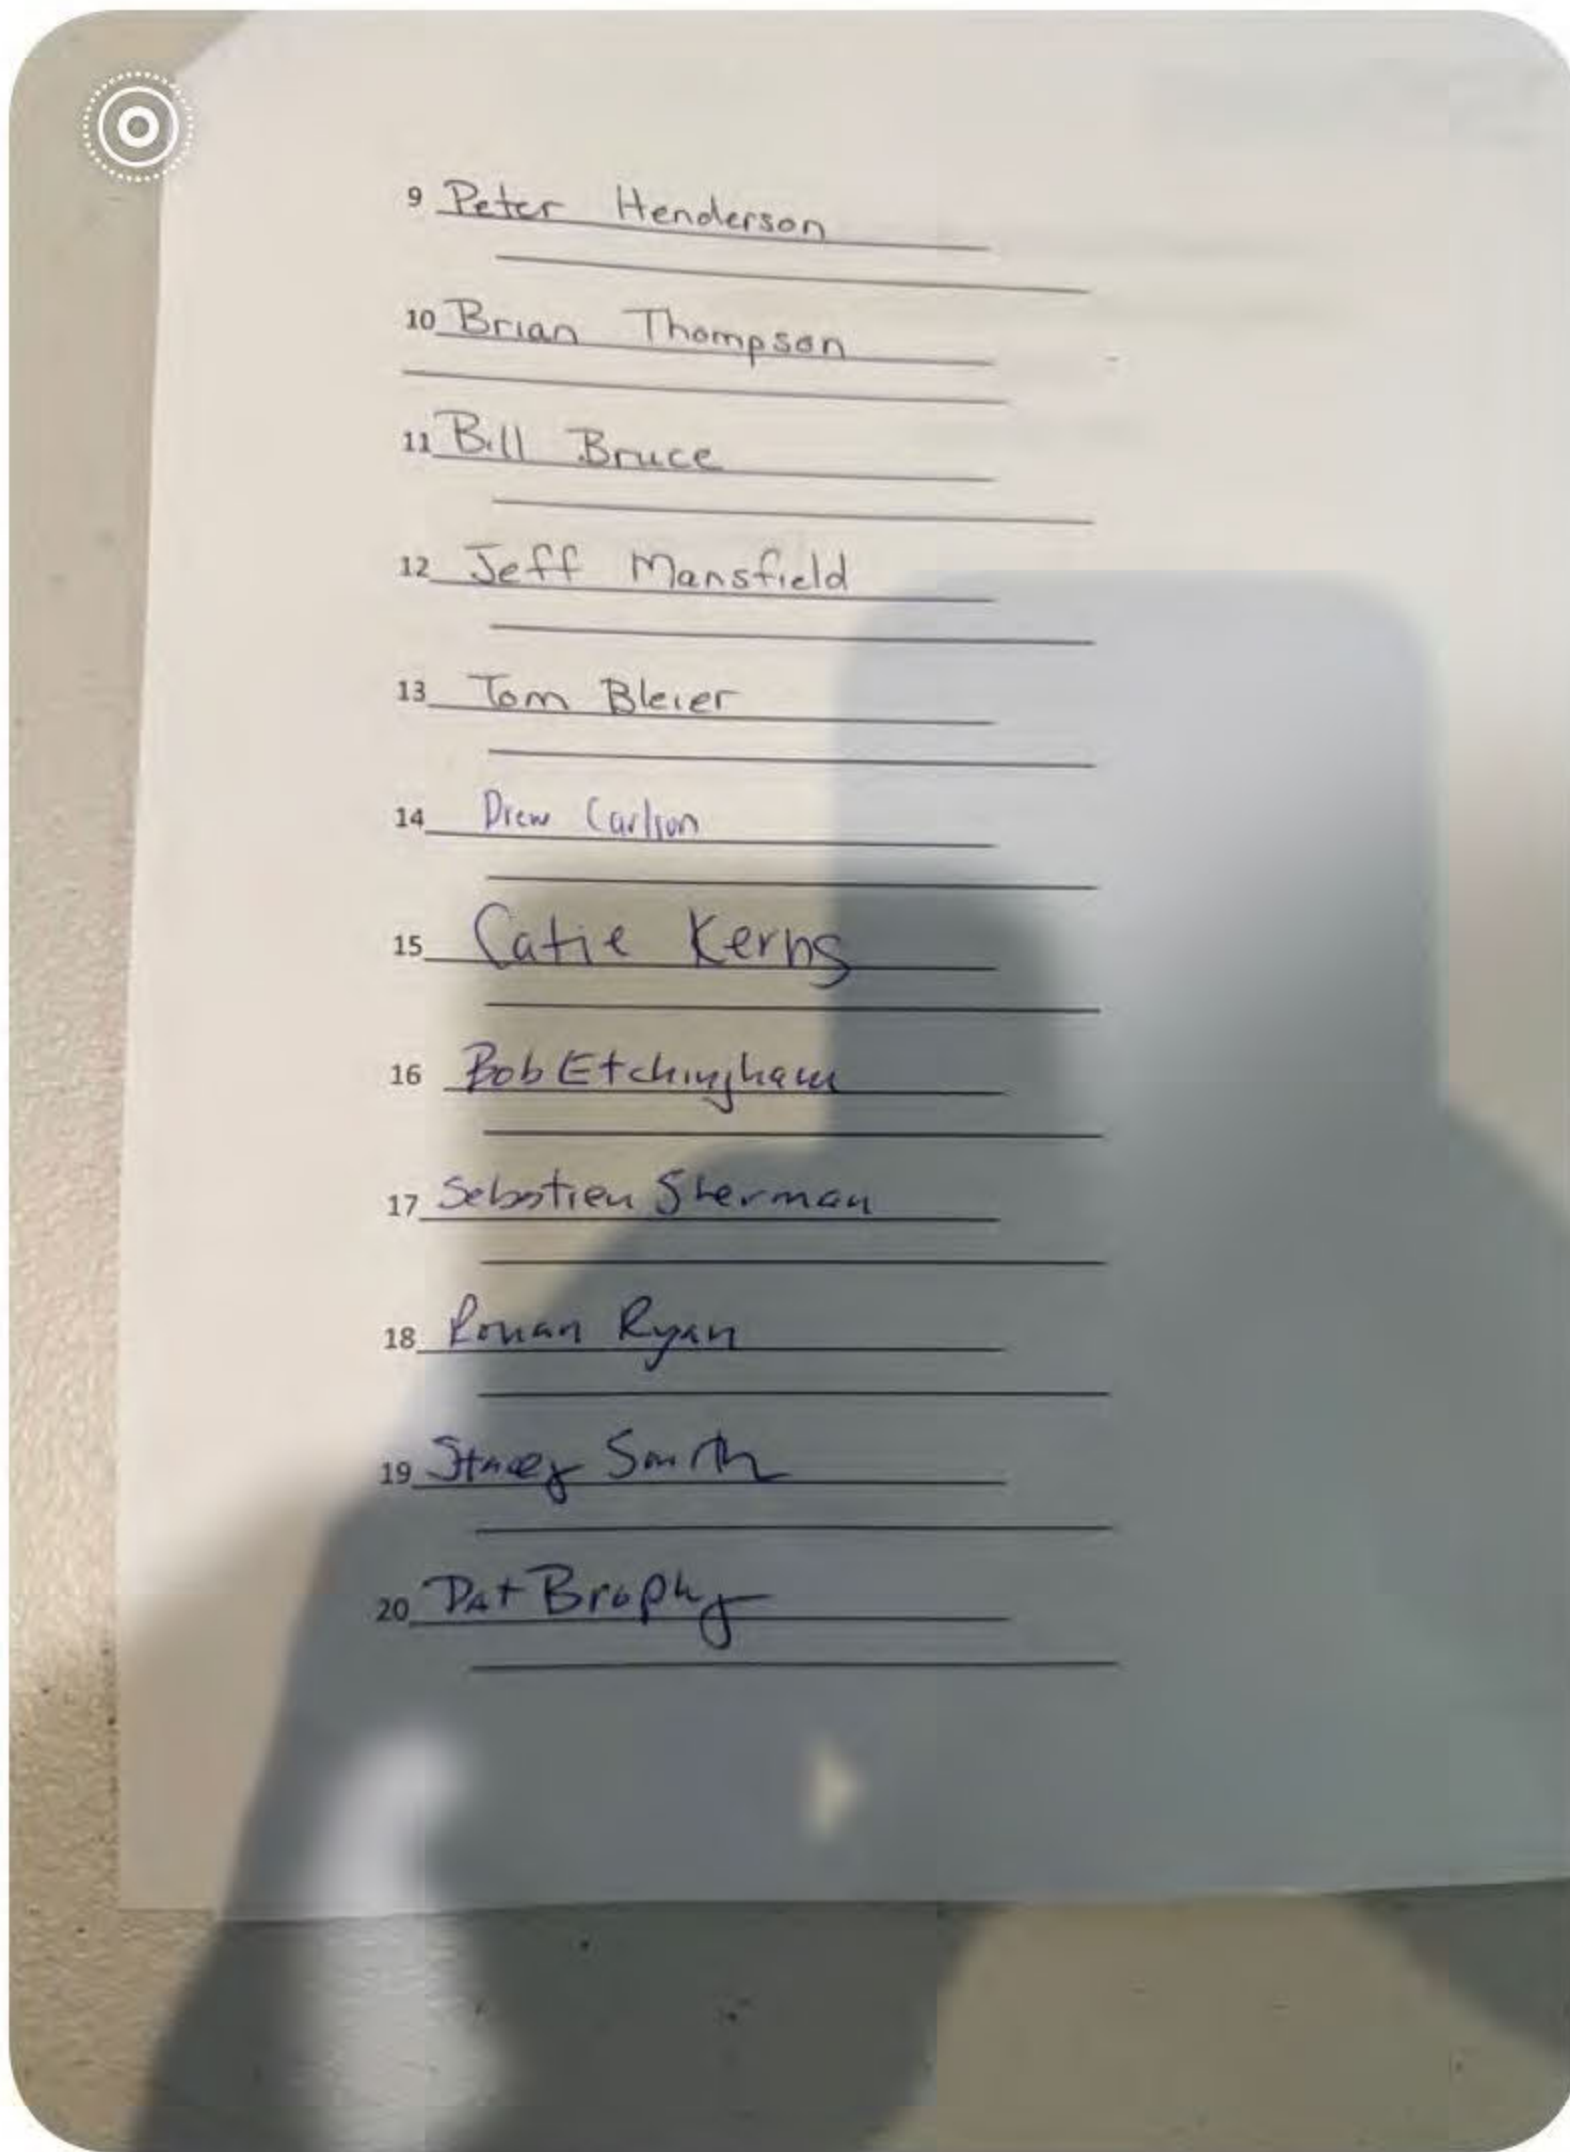 9 Peter Henderson
10 Brian Thompson
11 Bill Bruce
12 Jeff Mansfield
13 Tom Bleier
14 Drew Carlson
15 Catie Kerns
16 Bob Etchingham
17 Sebastien Sherman
18 Ronan Ryan
19 Stacey Smith
20 Pat Brophy